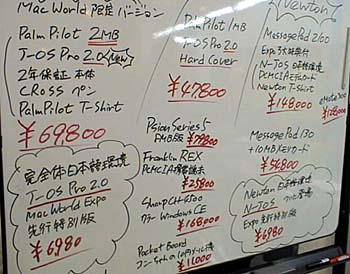 Mac World 限定バージョン
PalmPilot 2MB
J-OS Pro 2.0 (New)
2年保証 本体
CROSS ペン
PalmPilot T-Shirt
¥69,800
完全体日本語環境
J-OS Pro 2.0
Mac World Expo
先行特別版
¥6,980
PalmPilot 1MB
J-OS Pro 2.0
Hard Cover
¥47,800
Psion Series 5
8MB版
Franklin REX
PCMCIA
¥25,800
Sharp
カラー Windows CE
¥168,000
Pocket Board
¥11,000
Newton
MessagePad 2100
Expo 特別
N-JOS 日本語環境
PCMCIA
Newton T-Shirt
¥148,000
eMate 300
MessagePad 130
¥54,800
Newton 日本語環境
N-JOS
Expo 先行特別版
¥6,980